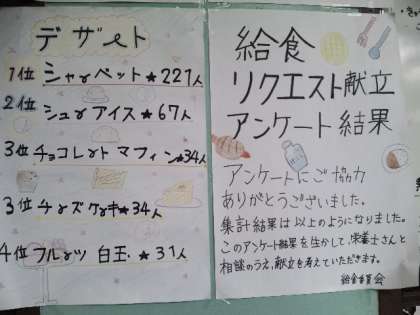 デザート
1位 シャーベット★221人
2位 シューアイス★67人
3位 チョコレート マフィン★34人
3位 チーズケーキ★34人
4位 フルーツ 白玉★31人
給食
リクエスト献立
アンケート結果
アンケートにご協力
ありがとうございました。
集計結果は以上のようになりました。
このアンケート結果を生かして、栄養士さんと
相談のうえ、献立を考えていただきます。
給食委員会